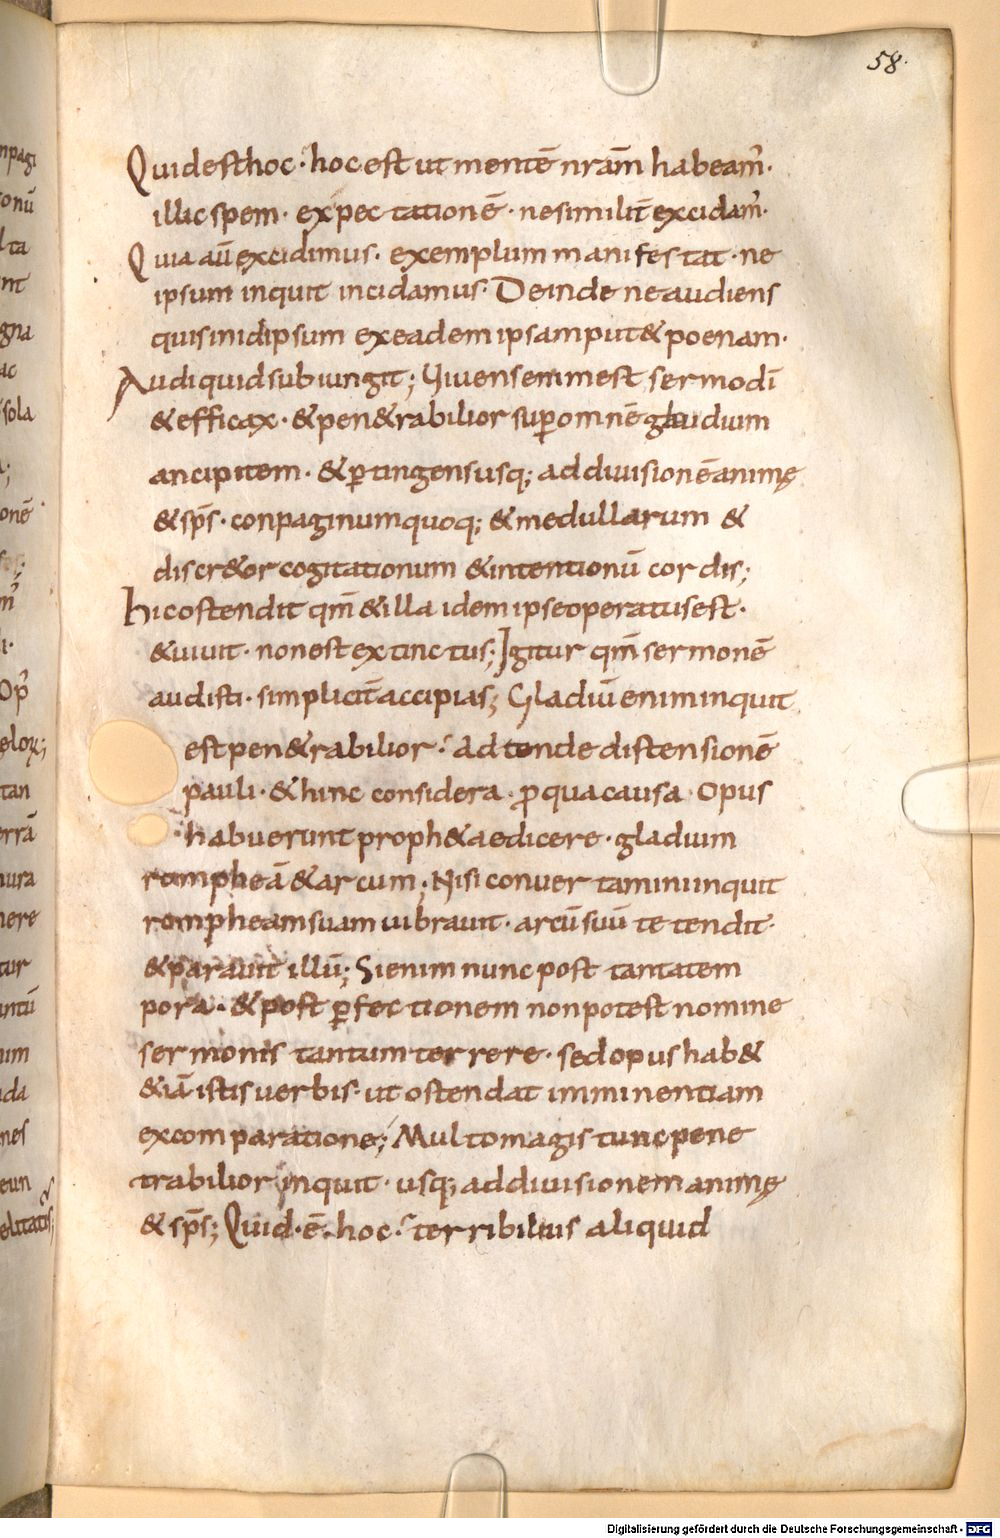 58.
Quid esthoc· hoc est ut mentē nrām habeam̄.
illic spem· expectationē· ne similit̄ excidam̄.
Quia aū excidimus· exemplum manifestat· ne
ipsum inquit incidamus· Deinde ne audiens
quis in idipsum ex eadem ipsam put& poenam·
Audi quid subiungit; Vivens enim est sermo dī
& efficax· & pen&rabilior sup̱ omnē gladium
ancipitem· & p̱tingens usq; ad divisionē animę
& sp̄s· conpaginum quoq; & medullarum &
discr&or cogitationum & intentionū cordis;
hic ostendit qm̄ & illa idem ipse operatus est·
& vivit· non est extinctus; Igitur qm̄ sermonē
audisti· simplicit̄ accipias; Gladiū enim inquit
est pen&rabilior· Adtende distensionē
pauli· & hinc considera· ꝓ qua causa opus
habuerunt proph&ae dicere· gladium
rompheā & arcum; Nisi convertamini inquit
rompheam suam vibravit· arcū suū tetendit·
& paravit illū; Si enim nunc post tantatem
pora· & post p̱fectionem non potest nomine
sermonis tantum terrere· sed opus hab&
& iā istis verbis· ut ostendat imminentiam
ex comparatione; Multo magis tunc pene
trabilior inquit· usq; ad divisionem animę
& sp̄s; Quid·ē·hoc· terribilius aliquid
Digitalisierung gefördert durch die Deutsche Forschungsgemeinschaft - DFG